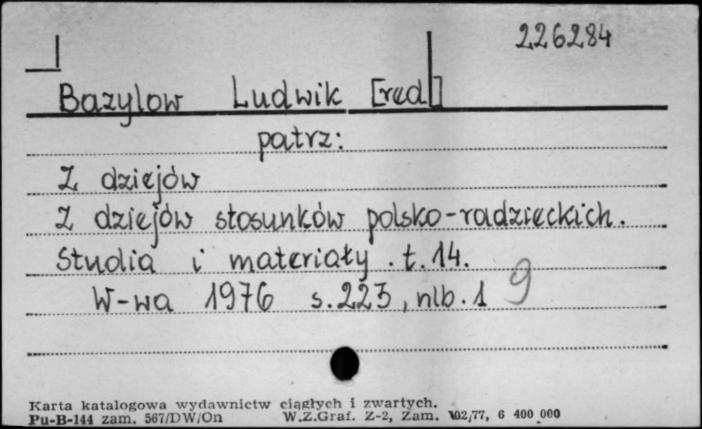 226284
Bazylow Ludwik [red]
patrz:
Z dziejów
Z dziejów stosunków polsko-radzieckich.
Studia i materiały. t. 14.
W-wa 1976 s. 223, nlb. 1 9
Karta katalogowa wydawnictw ciągłych i zwartych.
Pu-B-144 zam. 567/DW/On W.Z.Graf. Z-2, Zam. 102/77, 6 400 000